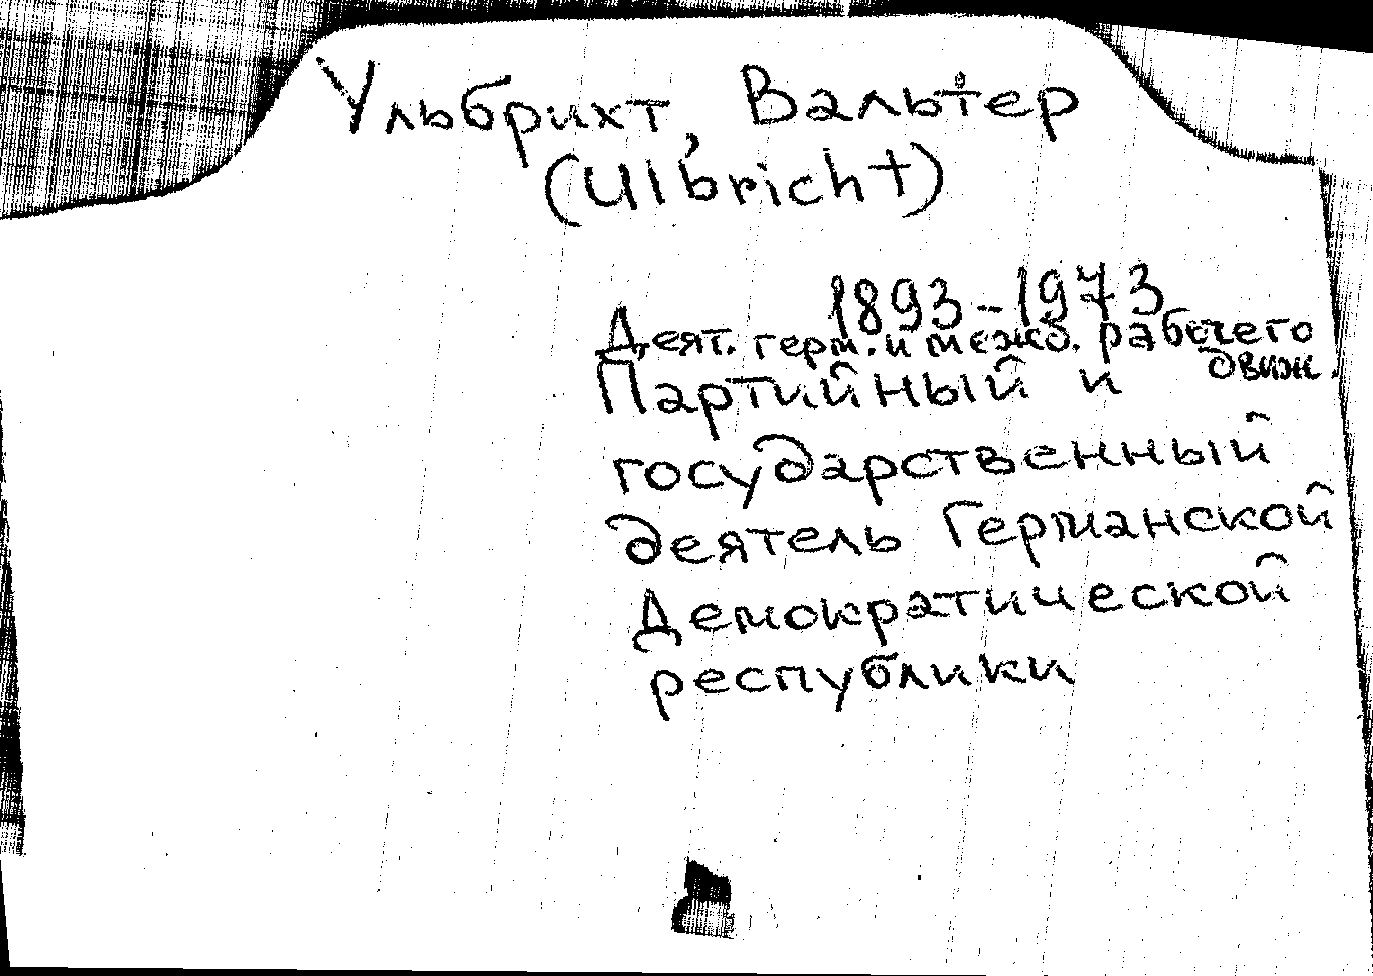 Ульбрихт, Вальтер
(Ulbricht)
1893-1973
Деят. герм. и межд. рабочего
движ.
Партийный и
государственный
деятель Германской
Демократической
республики